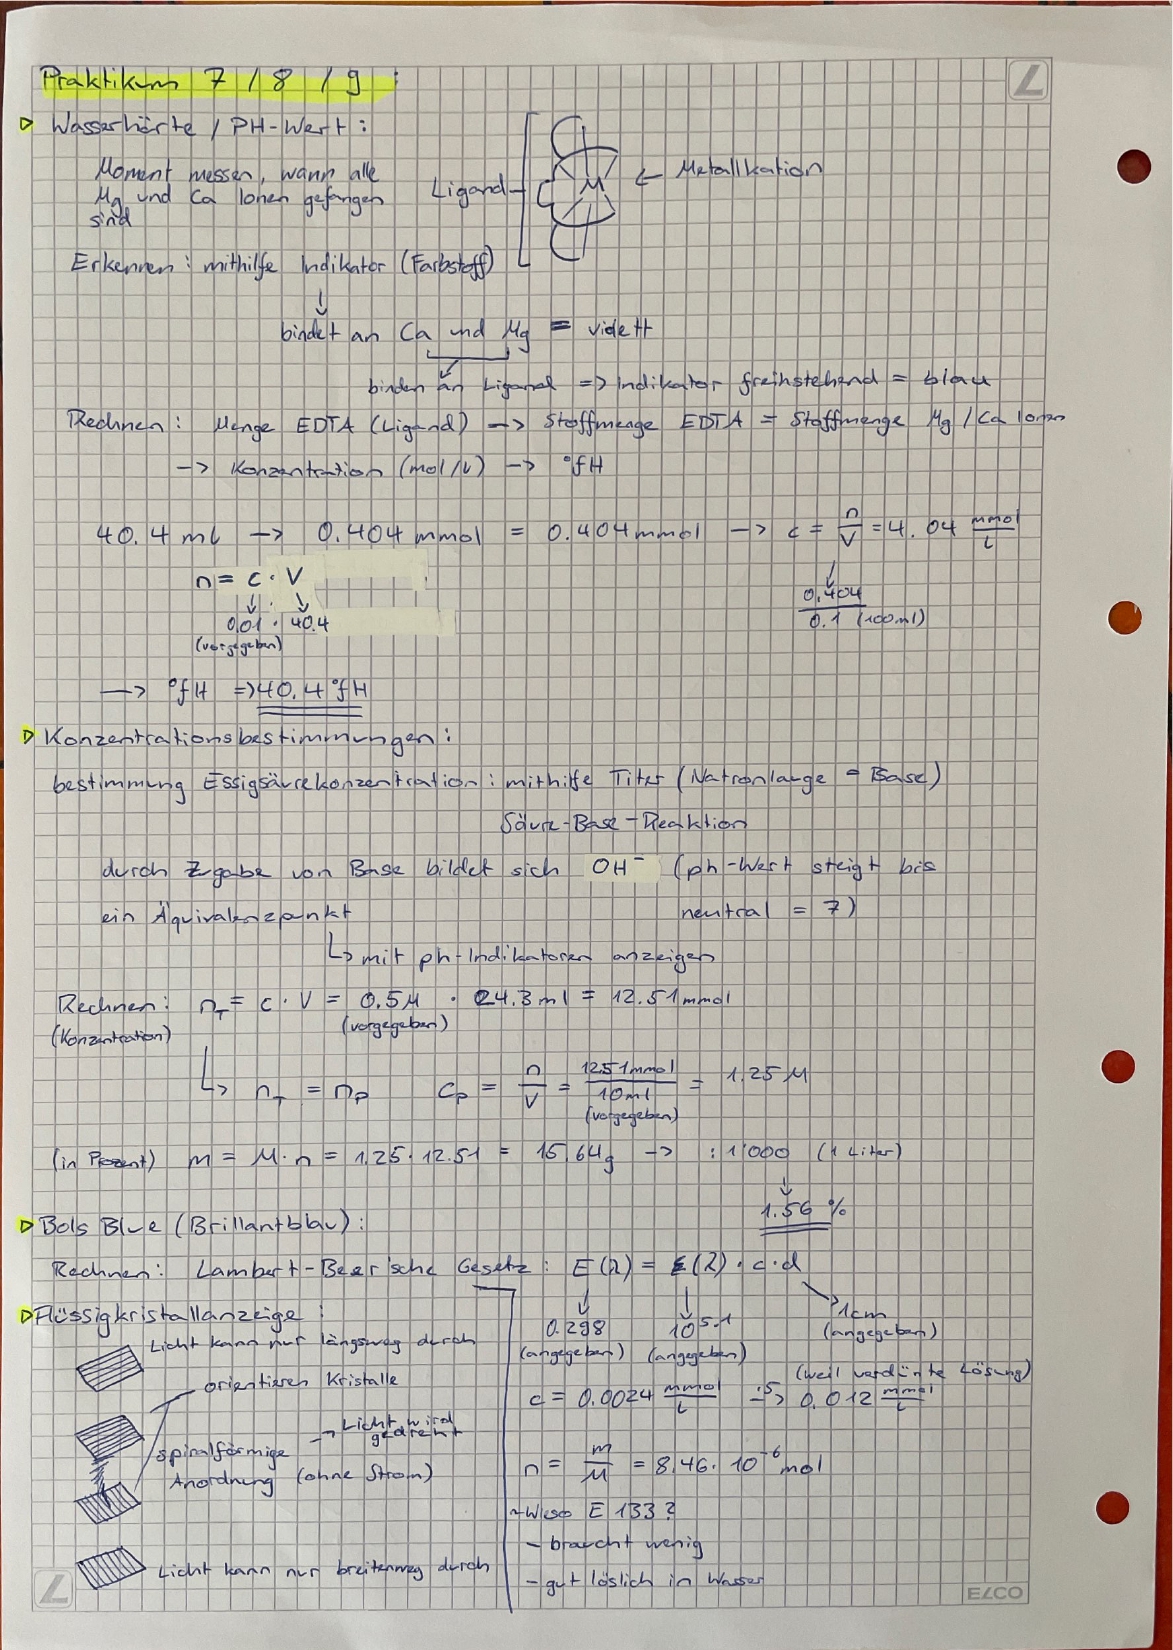 Praktikum 7 / 8 / 9 :
Wasserhärte / PH-Wert :
Moment messen, wann alle
Mg und Ca Ionen gefangen
sind
Ligand
M
← Metallkation
Erkennen : mithilfe Indikator (Farbstoff)
↓
bindet an Ca und Mg = violett
binden an Ligand => Indikator freihstehend = blau
Rechnen : Menge EDTA (Ligand) → Stoffmenge EDTA = Stoffmenge Mg / Ca Ionen
→ Konzentration (mol/L) → °fH
40.4 ml → 0.404 mmol = 0.404 mmol → c = n/V = 4.04 mmol/L
n = c · V
0.01 · 40.4
(vorgegeben)
0.404 / 0.1 (100ml)
→ °fH => 40.4 °fH
Konzentrationsbestimmungen :
bestimmung Essigsäurekonzentration : mithilfe Titer (Natronlauge = Base)
Säure-Base-Reaktion
durch Zgabe von Base bildet sich OH⁻ (ph-Wert steigt bis
ein Äquivalenzpunkt neutral = 7)
↳ mit ph-Indikatoren anzeigen
Rechnen : n_T = c · V = 0.5M · 24.3 ml = 12.51 mmol
(Konzentration) (vorgegeben)
↳ n_T = n_P c_P = n/V = 12.51mmol / 10ml = 1.25 M
(vorgegeben)
(in Prozent) m = M · n = 1.25 · 12.51 = 15.64g → : 1'000 (1 Liter)
↓
1.56 %
Bols Blue (Brillantblau) :
Rechnen : Lambert-Beer'sche Gesetz : E(λ) = ε(λ) · c · d
0.298 10^5.1 1cm
(angegeben) (angegeben) (angegeben)
(weil verdünnte Lösung)
c = 0.0024 mmol/L ·5→ 0.012 mmol/L
n = m/M = 8.46 · 10⁻⁶ mol
~Wieso E 133 ?
- braucht wenig
- gut löslich in Wasser
Flüssigkristallanzeige :
Licht kann nur längsweg durch
orientieren Kristalle
→ Licht wird
gedreht
spiralförmige
Anordnung (ohne Strom)
Licht kann nur breitenweg durch
ELCO